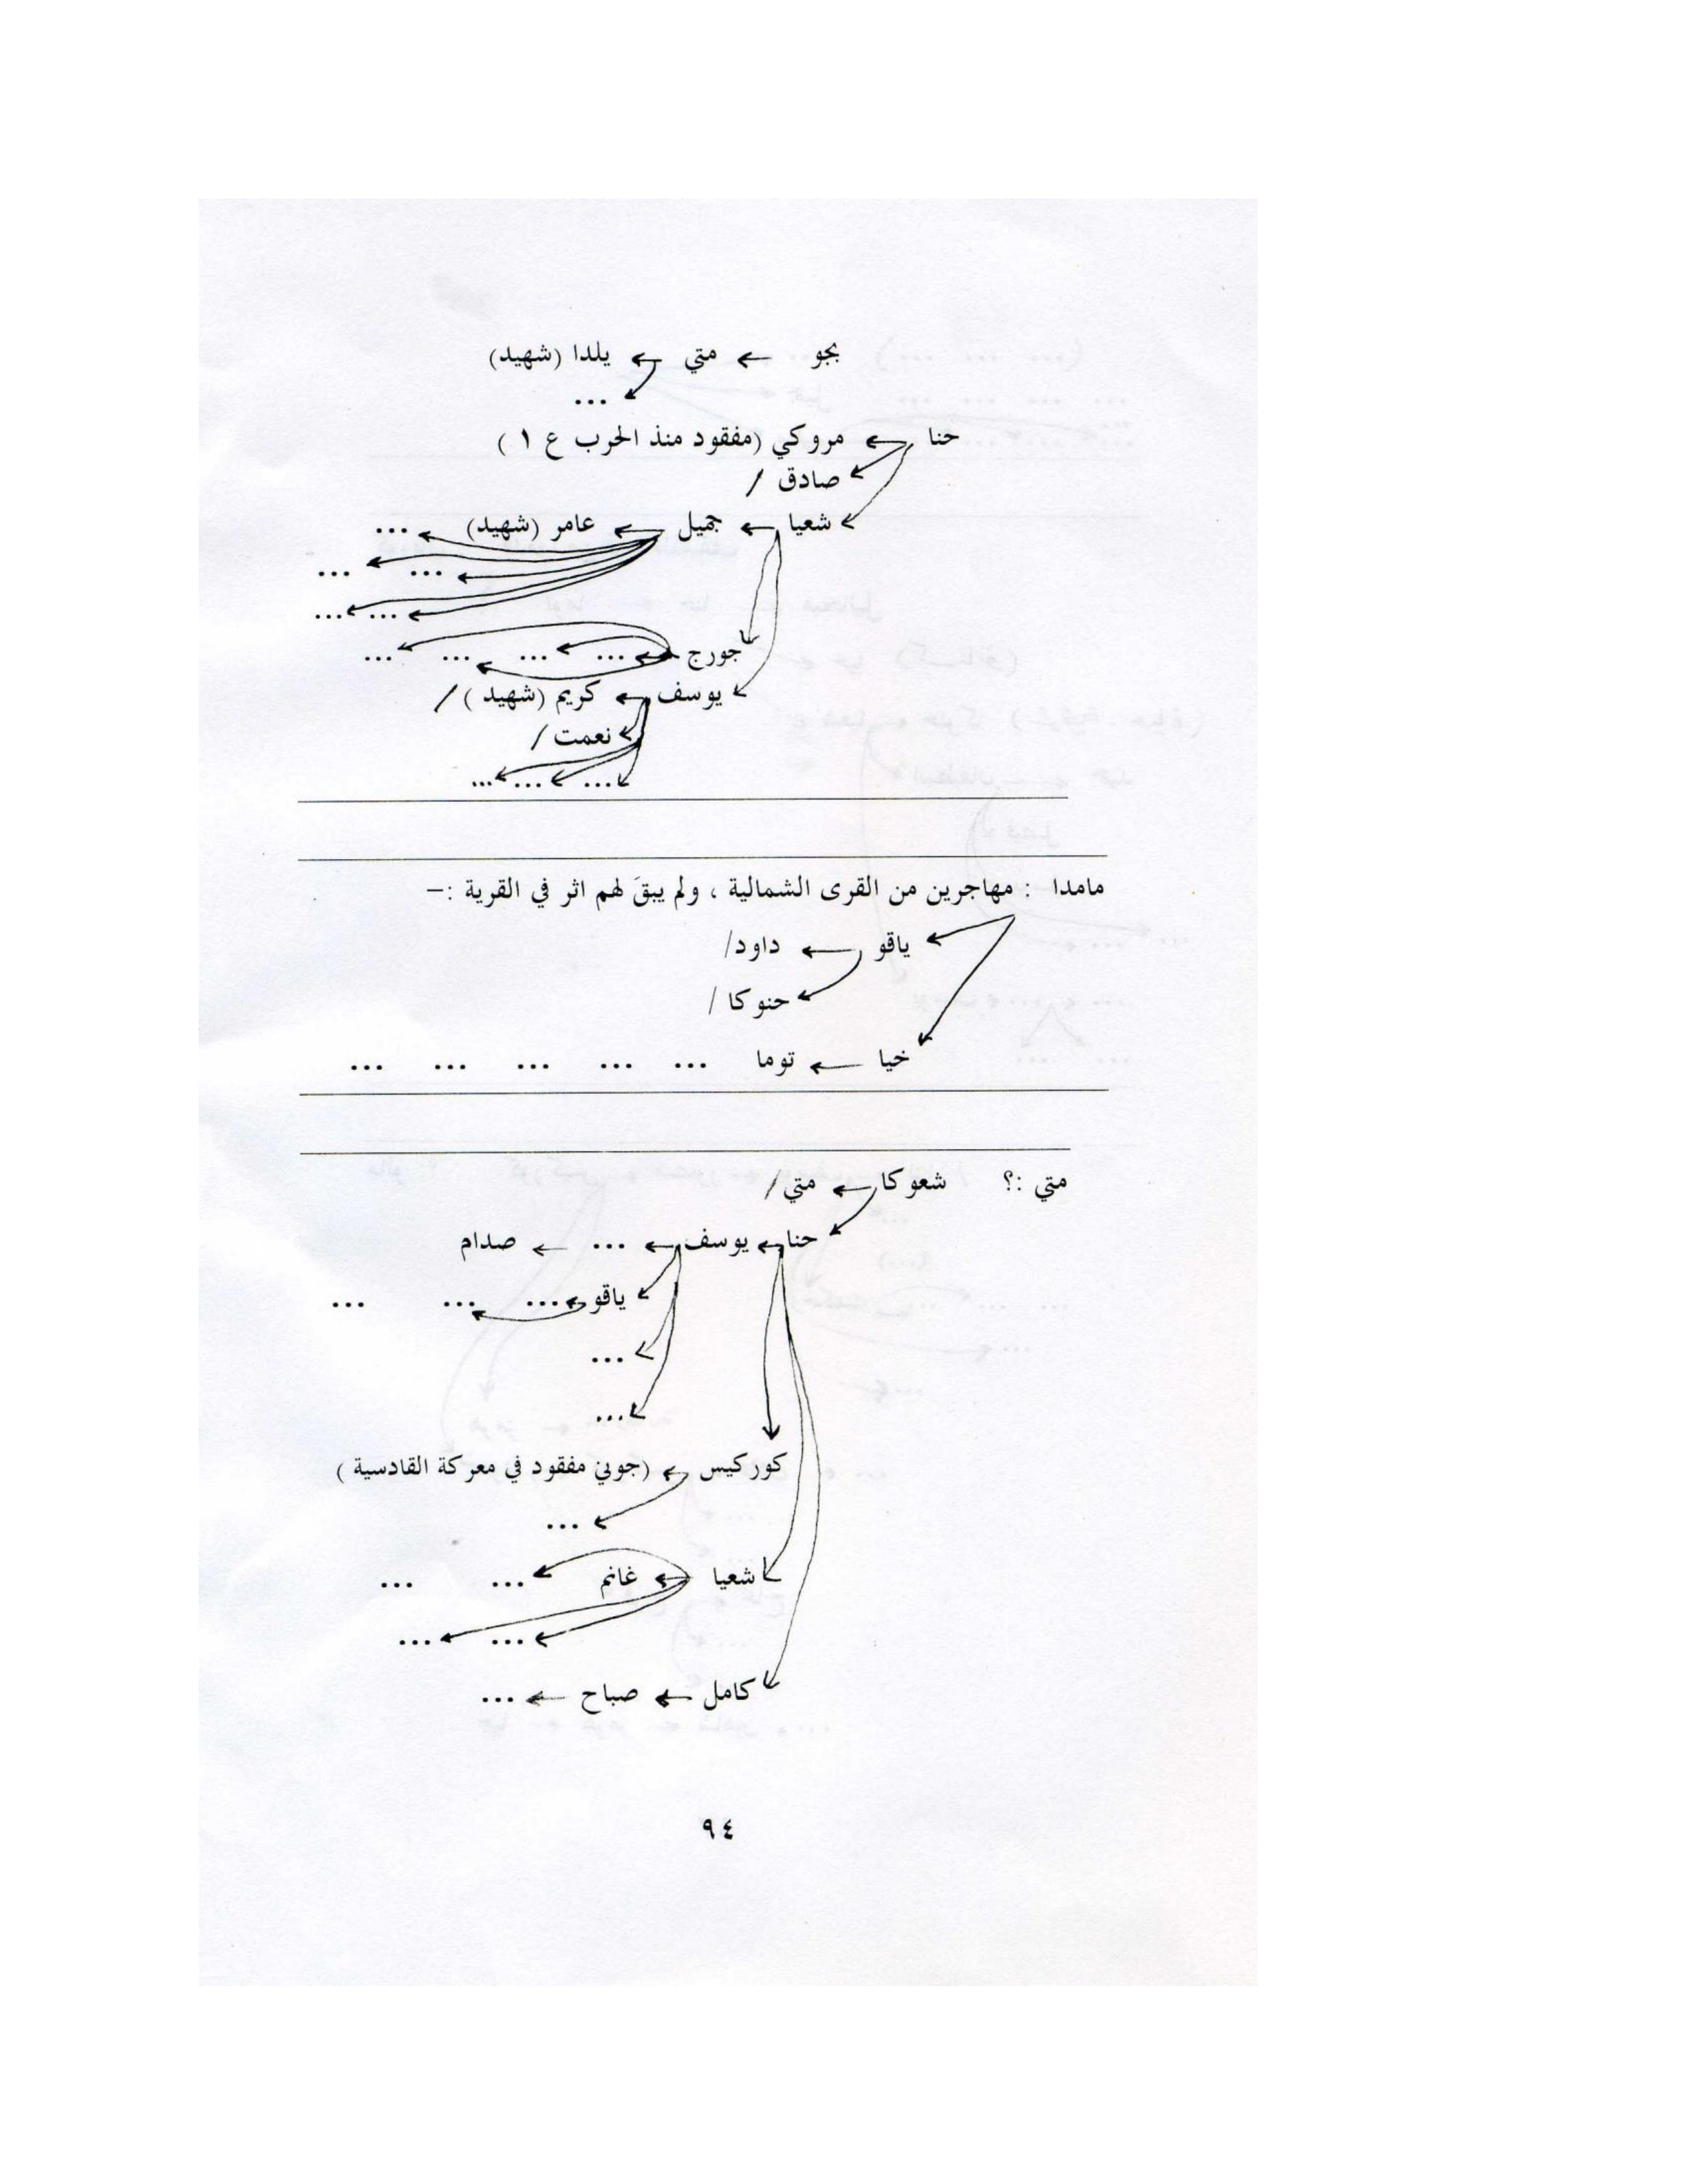 بجو ← متي ← يلدا (شهيد)
...
حنا ← مروكي (مفقود منذ الحرب ع ١ )
صادق /
شعيا ← جميل ← عامر (شهيد) ...
... ...
... ...
جورج ← ... ... ... ...
يوسف ← كريم (شهيد ) /
نعمت /
... ... ...
مامدا : مهاجرين من القرى الشمالية ، ولم يبقَ لهم اثر في القرية :–
ياقو ← داود/
حنوكا /
خيا ← توما ... ... ... ... ...
متي :؟ شعوكا ← متي/
حنا ← يوسف ← ... ← صدام
ياقو ← ... ... ...
...
...
كوركيس ← (جوني مفقود في معركة القادسية )
...
شعيا ← غانم ... ...
... ...
كامل ← صباح ← ...
٩٤